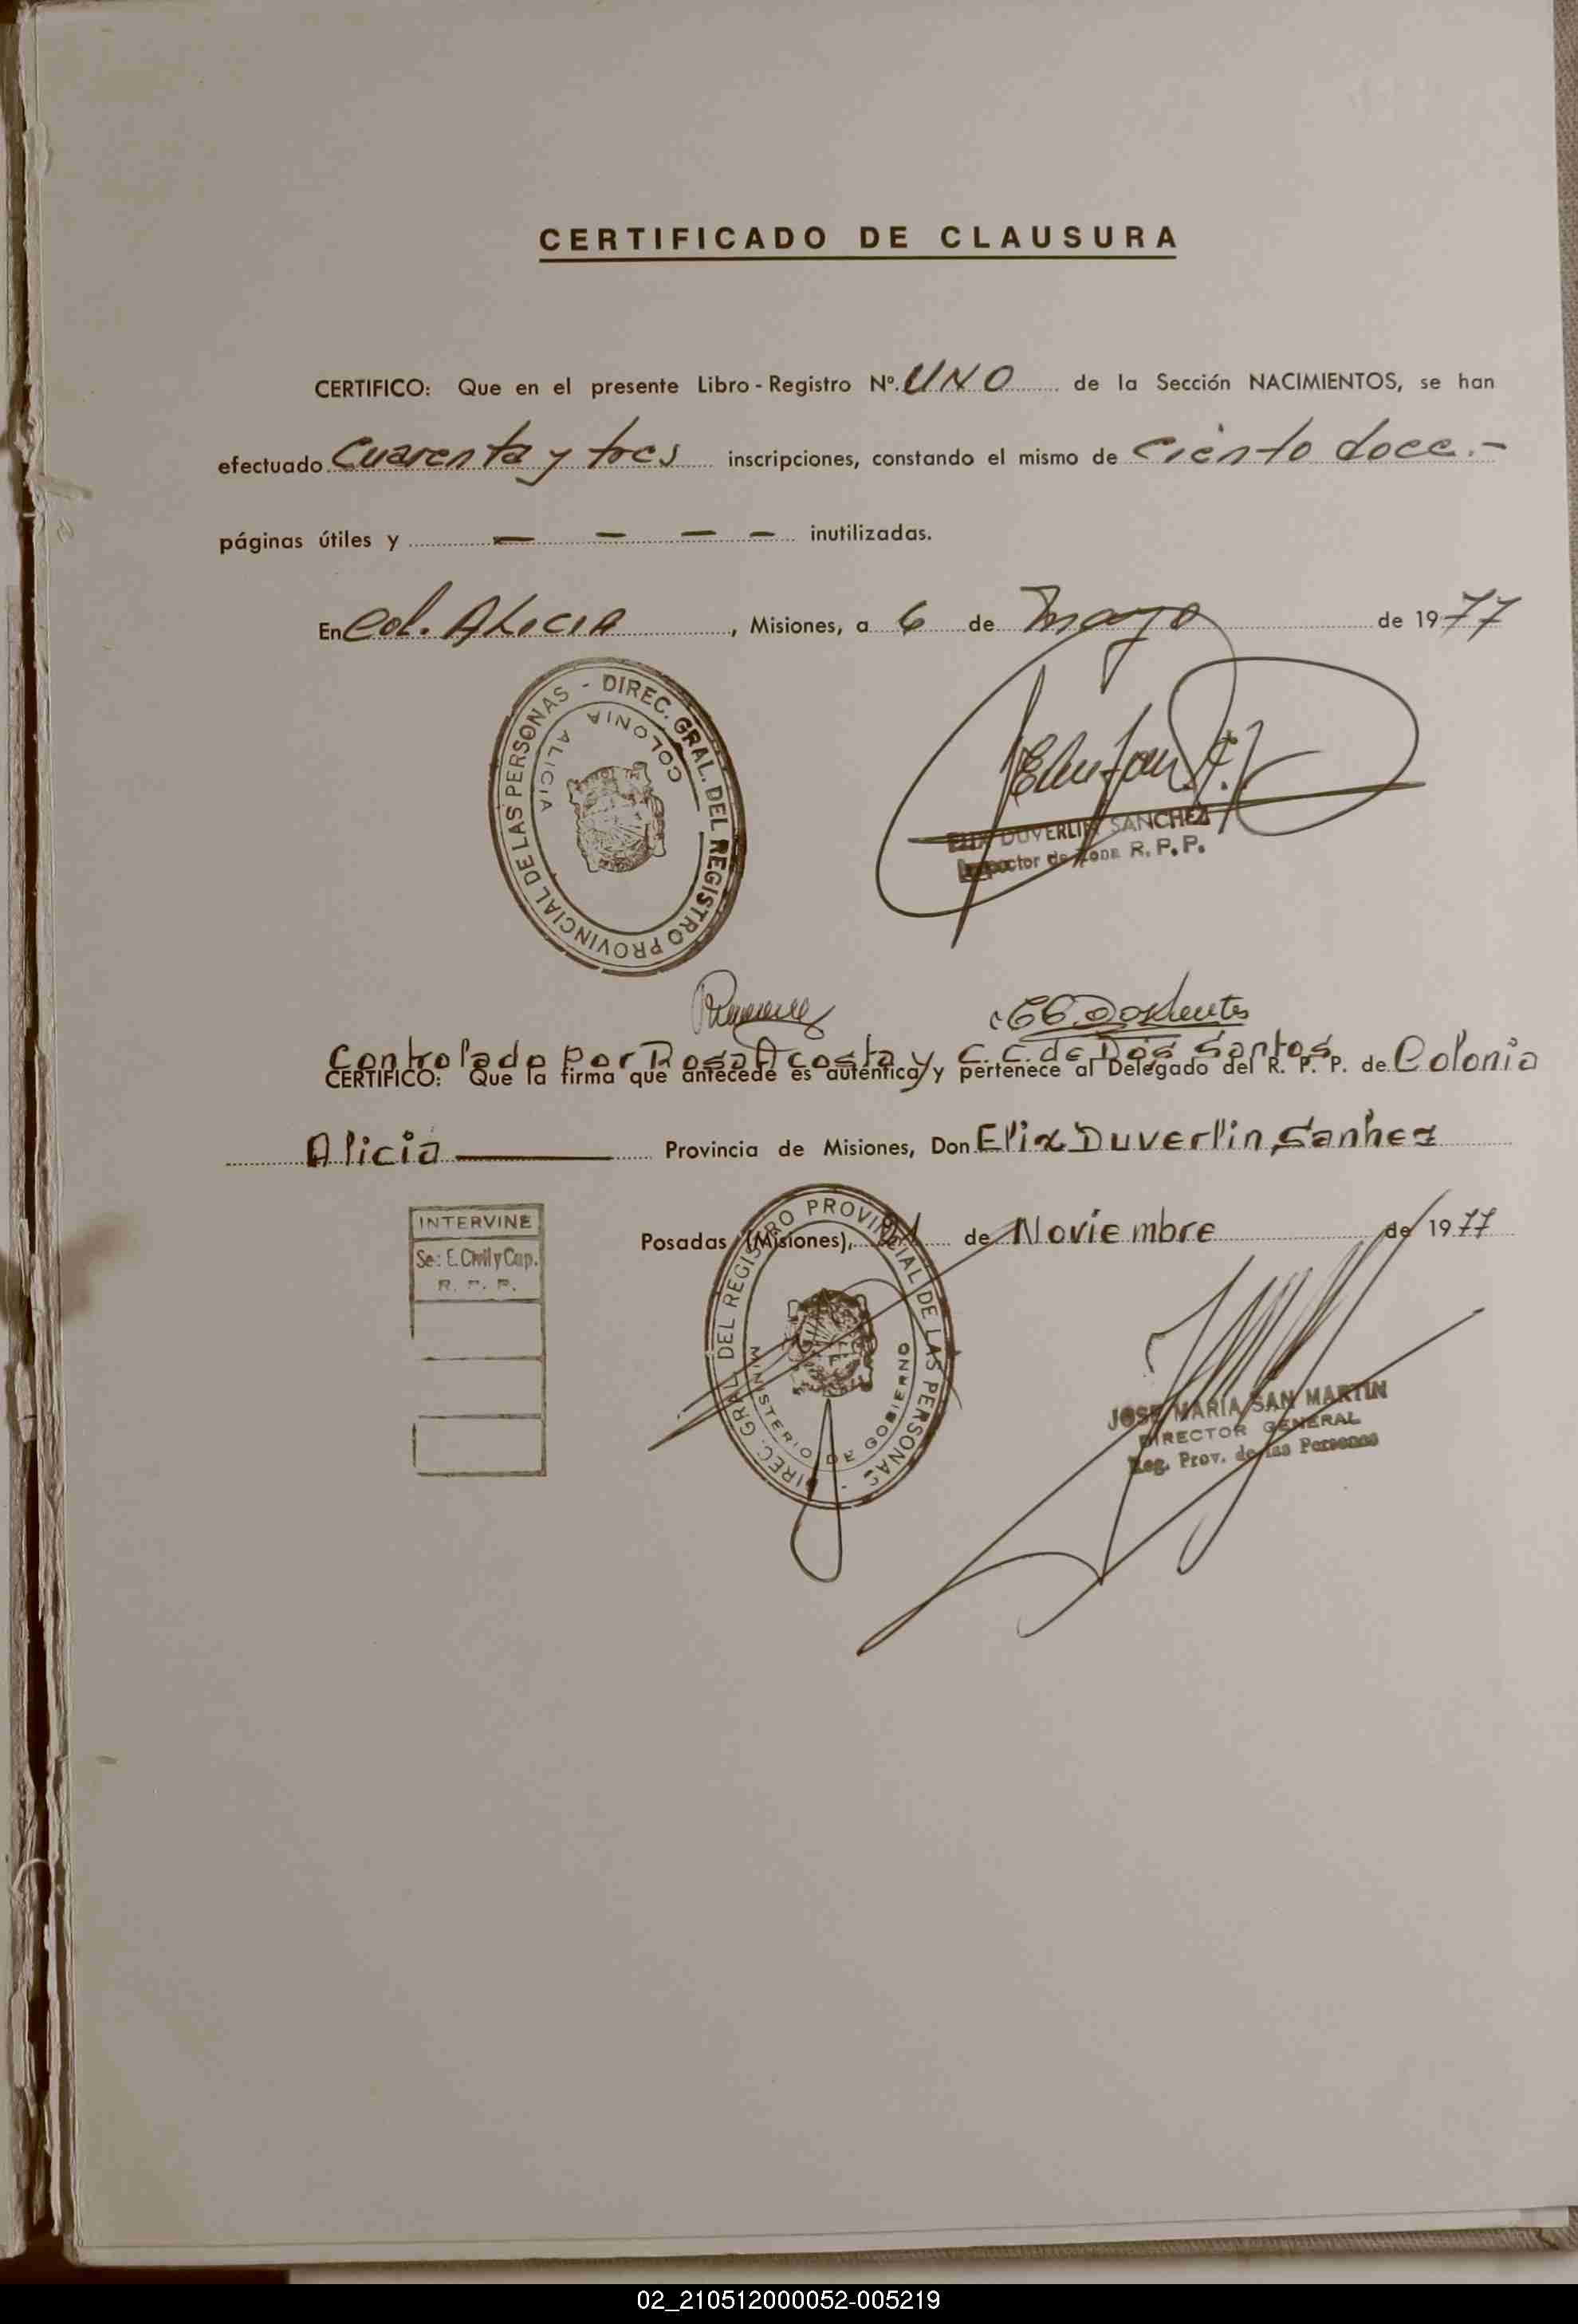 CERTIFICADO DE CLAUSURA
CERTIFICO: Que en el presente Libro - Registro Nº. UNO de la Sección NACIMIENTOS, se han
efectuado Cuarenta y tres inscripciones, constando el mismo de ciento doce.-
páginas útiles y — — — — inutilizadas.
En Col. ALICIA, Misiones, a 6 de mayo de 1977
DIREC. GRAL. DEL REGISTRO PROVINCIAL DE LAS PERSONAS -
COLONIA ALICIA
ELIX DUVERLIN SANCHEZ
Inspector de Zona R. P. P.
Controlado por Rosa Acosta y C. C. de Dos Santos
CERTIFICO: Que la firma que antecede es auténtica y pertenece al Delegado del R. P. P. de Colonia
Alicia — Provincia de Misiones, Don Elix Duverlin Sanhez
INTERVINE
Sec: E. Civil y Cap.
R. P. P.
Posadas (Misiones), de Noviembre de 1977
DIREC. GRAL. DEL REGISTRO PROVINCIAL DE LAS PERSONAS -
MINISTERIO DE GOBIERNO
JOSE MARIA SAN MARTIN
DIRECTOR GENERAL
Reg. Prov. de las Personas
02_210512000052-005219